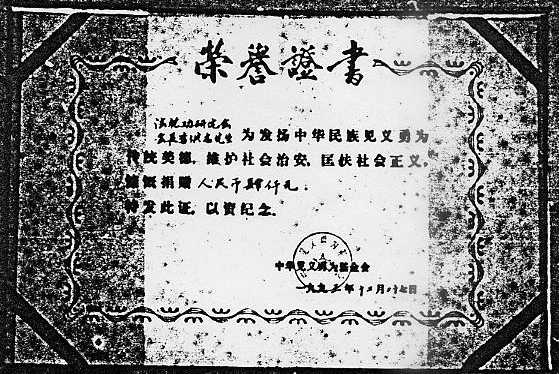 荣誉證書
法轮功研究会
会长李洪志先生为发扬中华民族见义勇为
传统美德，维护社会治安，匡扶社会正义，
慷慨捐赠人民币肆仟元，
特发此证，以资纪念。
中华见义勇为基金会
一九九三年十二月廿七日